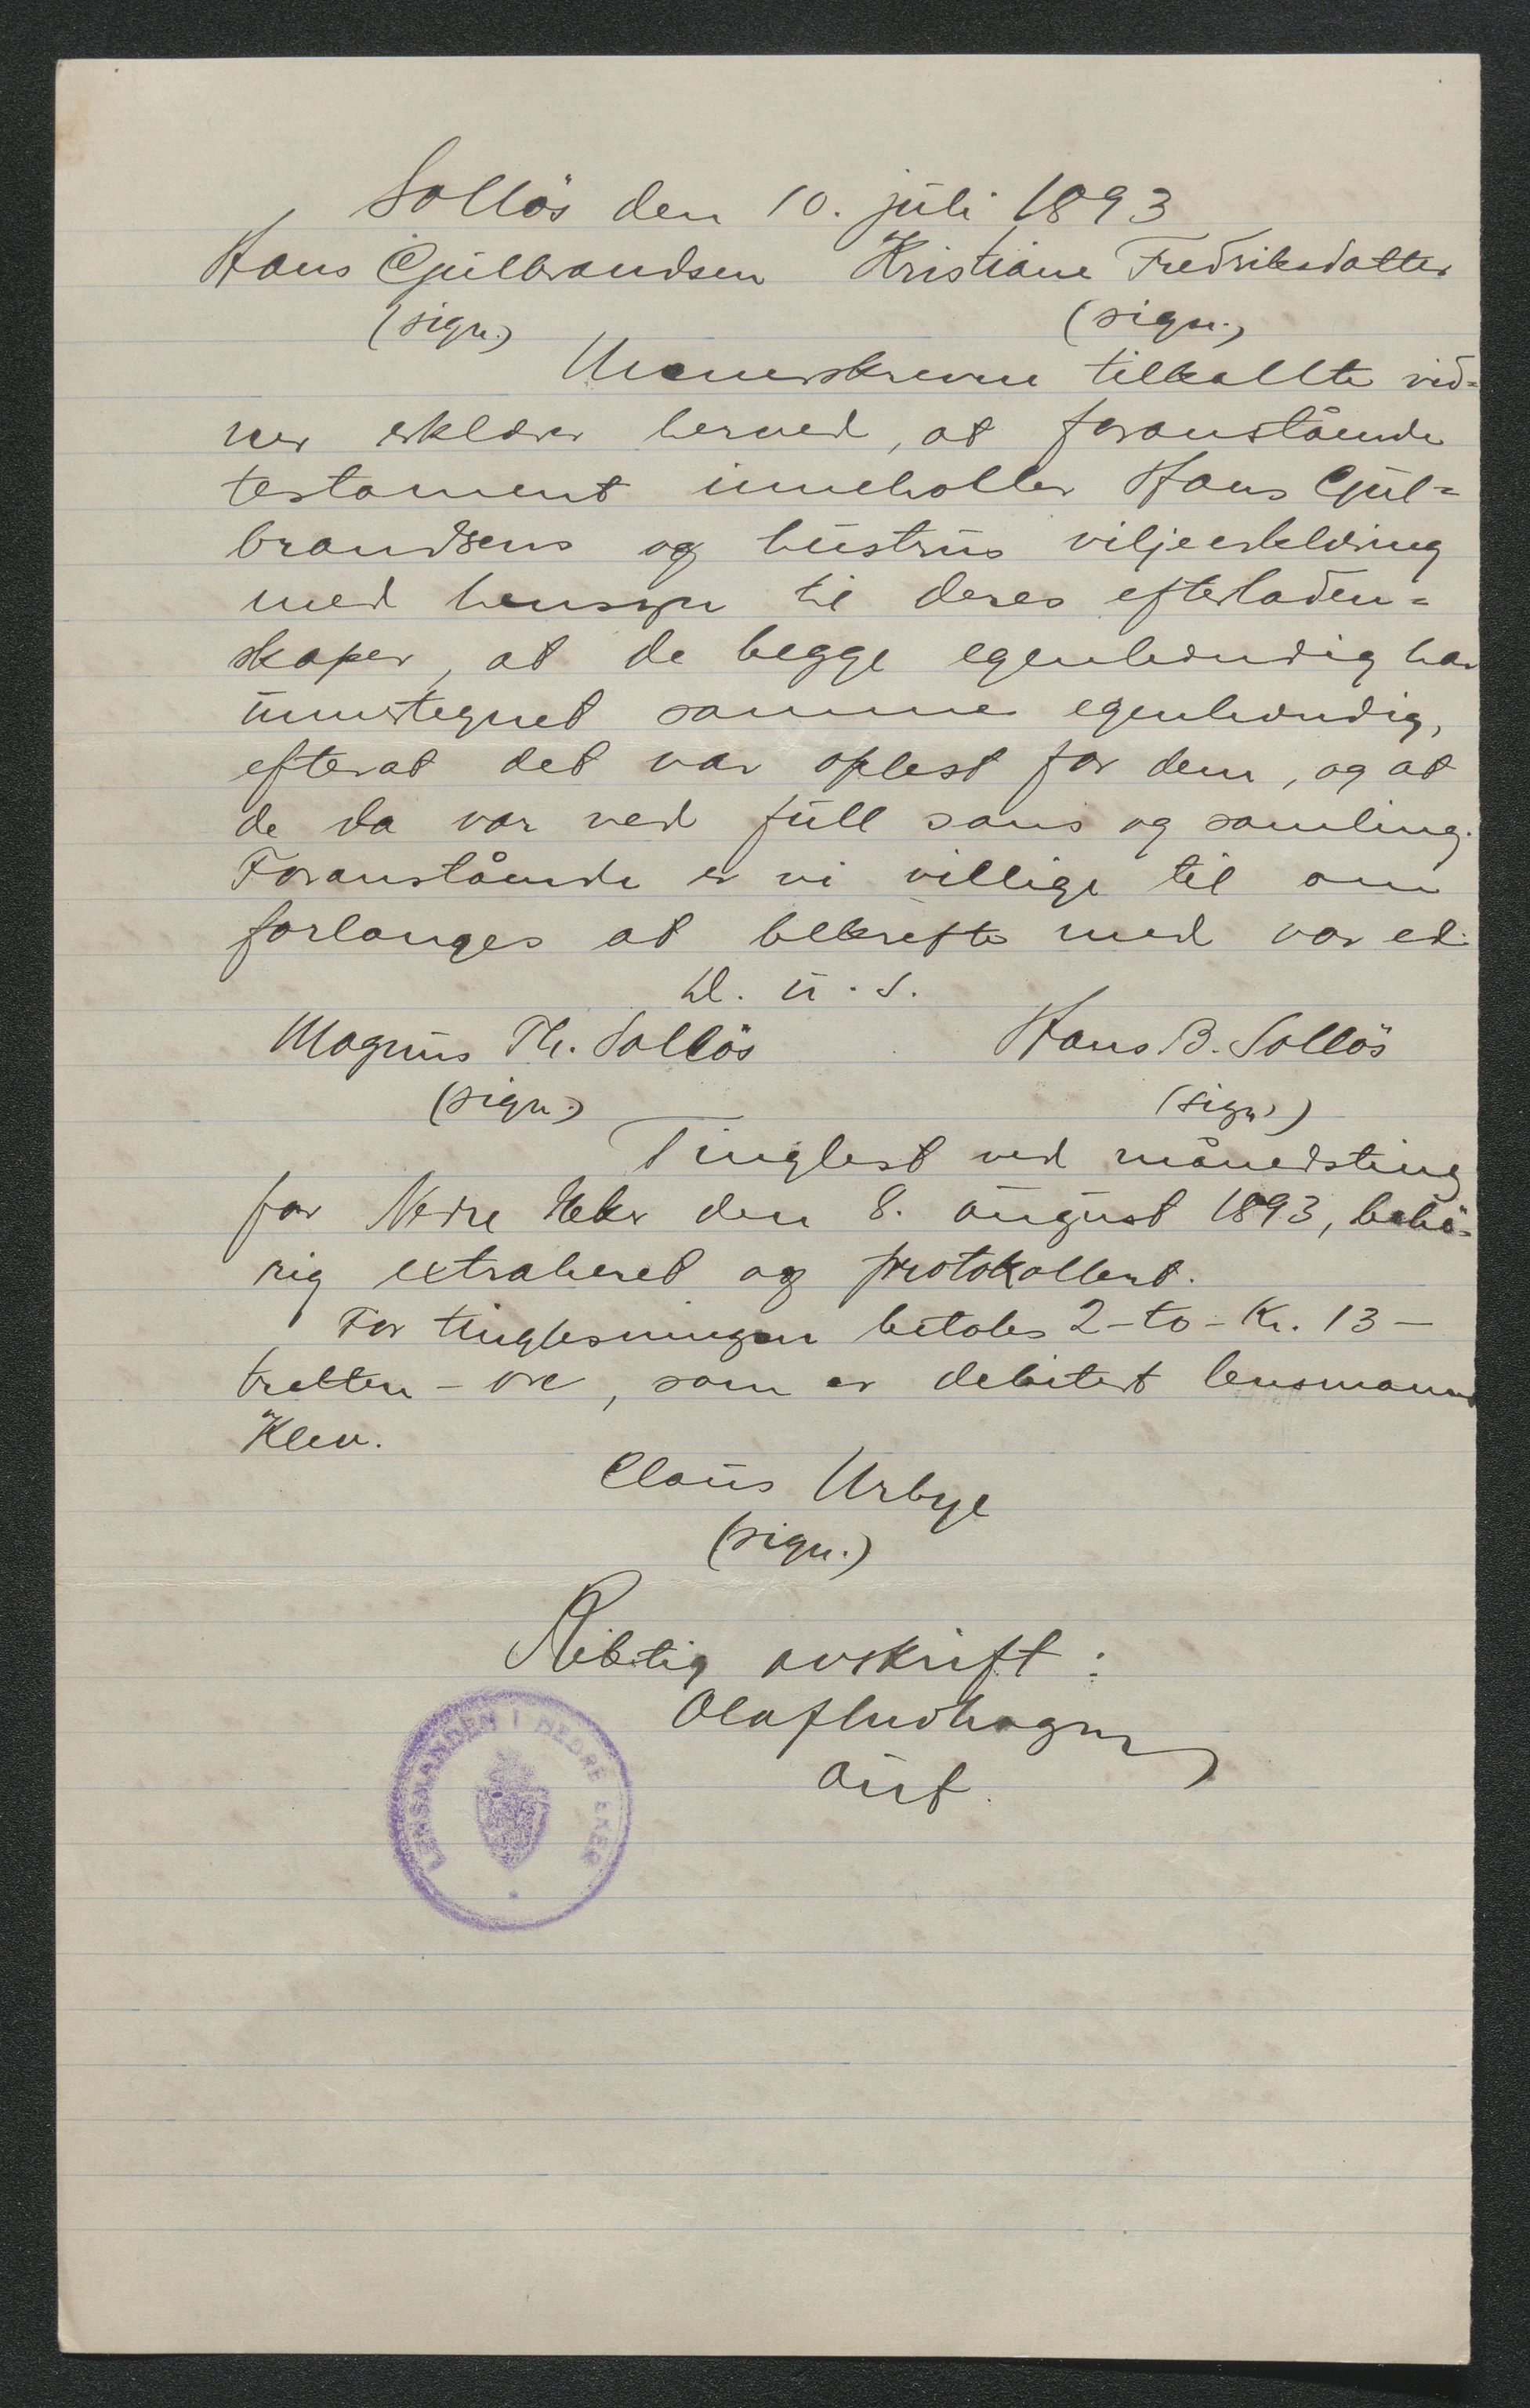 Solløs den 10. juli 1893
Hans Gulbrandsen Kristiane Fredriksdatter
(sign.) (sign.)
Unnerskrevne tilkallte vid=
ner erklærer herved, at foranstående
testament inneholler Hans Gul=
brandsens og hustrus viljeerklæring
med hensyn til deres efterladen=
skaper, at de begge egenhændig har
unnertegnet samme egenhændig,
efterat det var oplest for dem, og at
de da var ved full sans og samling.
Foranstående er vi villige til om
forlanges at bekræfte med vor ed.
D. u. s.
Magnus Th. Solløs Hans B. Solløs
(sign.) (sign.)
Tinglest ved månedsting
for Nedre Eker den 8. august 1893, behø=
rig extraheret og protokollert.
For tinglesningen betales 2-to-Kr. 13-
tretten-øre, som er debitert lensmann
Klev.
Claus Urbye
(sign.)
Riktig avskrift:
Olaf
aut.
LENSMANDEN I NEDRE EKER